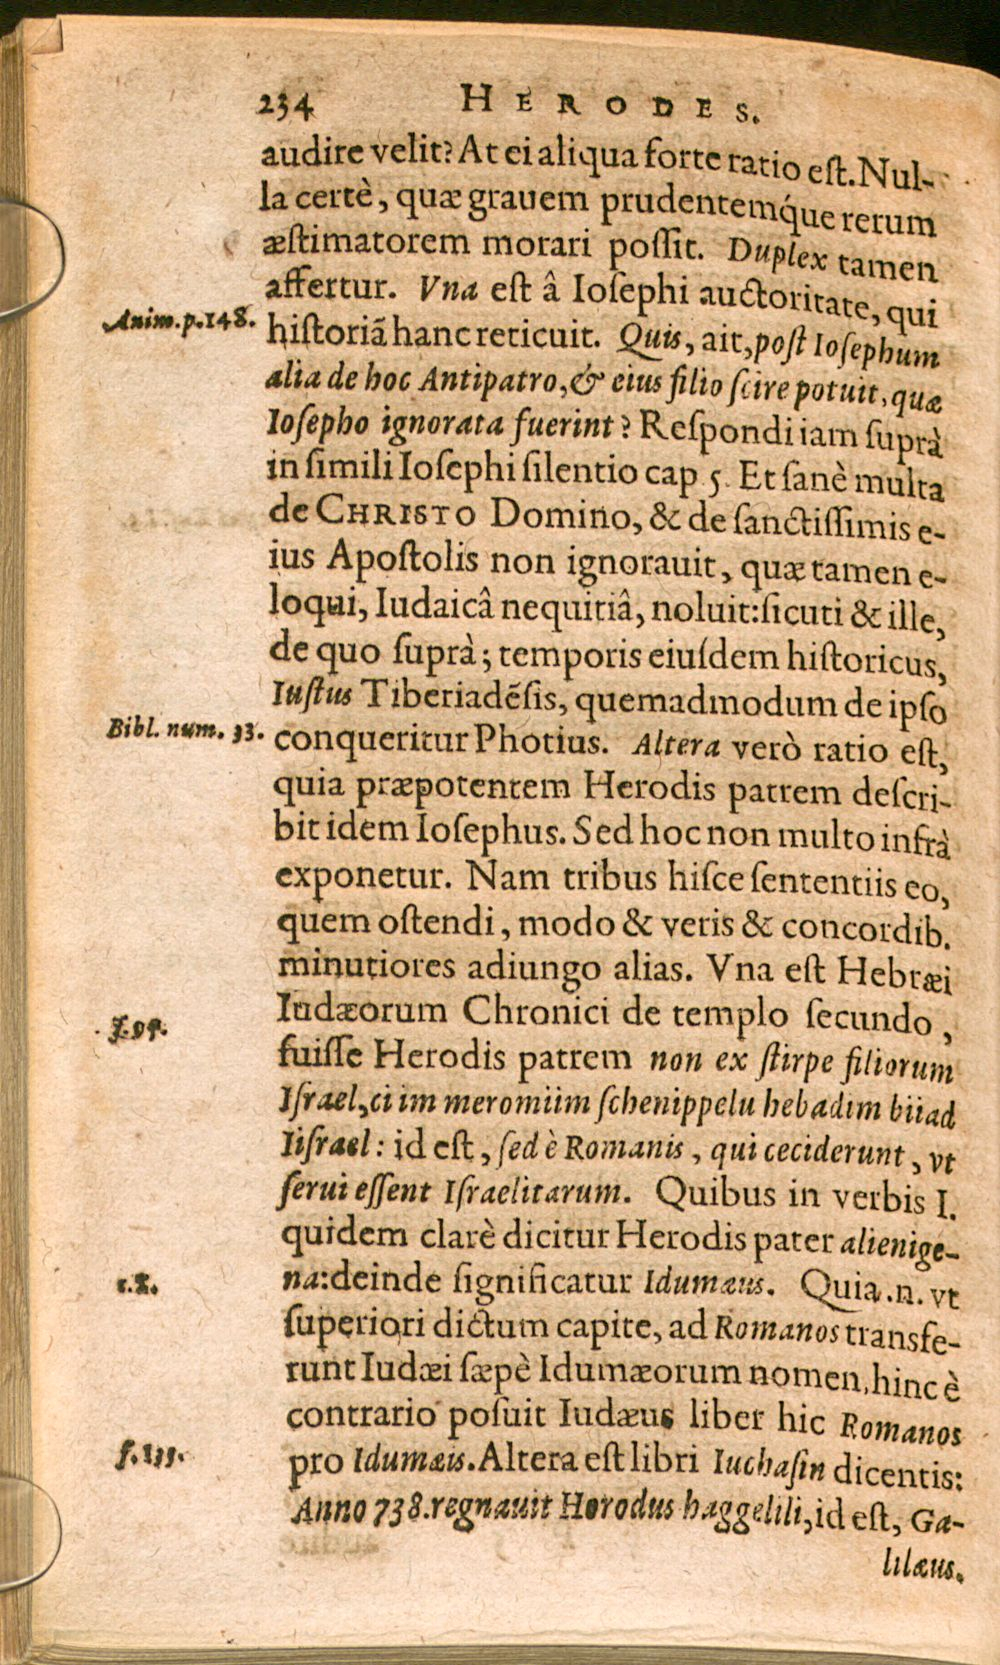 234 HERODES.
audire velit? At ei aliqua forte ratio eſt. Nul-
la certè, quæ grauem prudentemq́ue rerum
æſtimatorem morari poſſit. Duplex tamen
affertur. Vna eſt â Ioſephi auctoritate, qui
Anim. p. 148.
hiſtoriã hanc reticuit. Quis, ait, poſt Ioſephum
alia de hoc Antipatro, & eius filio ſcire potuit, quæ
Ioſepho ignorata fuerint? Reſpondi iam ſuprà
in ſimili Ioſephi ſilentio cap 5. Et ſanè multa
de CHRISTO Domino, & de ſanctiſſimis e-
ius Apoſtolis non ignorauit, quæ tamen e-
loqui, Iudaicâ nequitiâ, noluit: ſicuti & ille,
de quo ſuprà; temporis eiuſdem hiſtoricus,
Iuſtus Tiberiadẽſis, quemadmodum de ipſo
Bibl. num. 33.
conqueritur Photius. Altera verò ratio eſt,
quia præpotentem Herodis patrem deſcri-
bit idem Ioſephus. Sed hoc non multo infrà
exponetur. Nam tribus hiſce ſententiis eo,
quem oſtendi, modo & veris & concordib.
minutiores adiungo alias. Vna eſt Hebræi
Iudæorum Chronici de templo ſecundo,
fuiſſe Herodis patrem non ex ſtirpe filiorum
Iſrael, ci im meromiim ſchenippelu hebadim biiad
Iiſrael: id eſt, ſed è Romanis, qui ceciderunt, vt
ſerui eſſent Iſraelitarum. Quibus in verbis I.
quidem clarè dicitur Herodis pater alienige-
na: deinde ſignificatur Idumæus. Quia .n. vt
c. 8.
ſuperiori dictum capite, ad Romanos transfe-
runt Iudæi ſæpè Idumæorum nomen, hinc è
contrario poſuit Iudæus liber hic Romanos
pro Idumæis. Altera eſt libri Iuchaſin dicentis:
Anno 738. regnauit Herodus haggelili, id eſt, Ga-
lilæus.